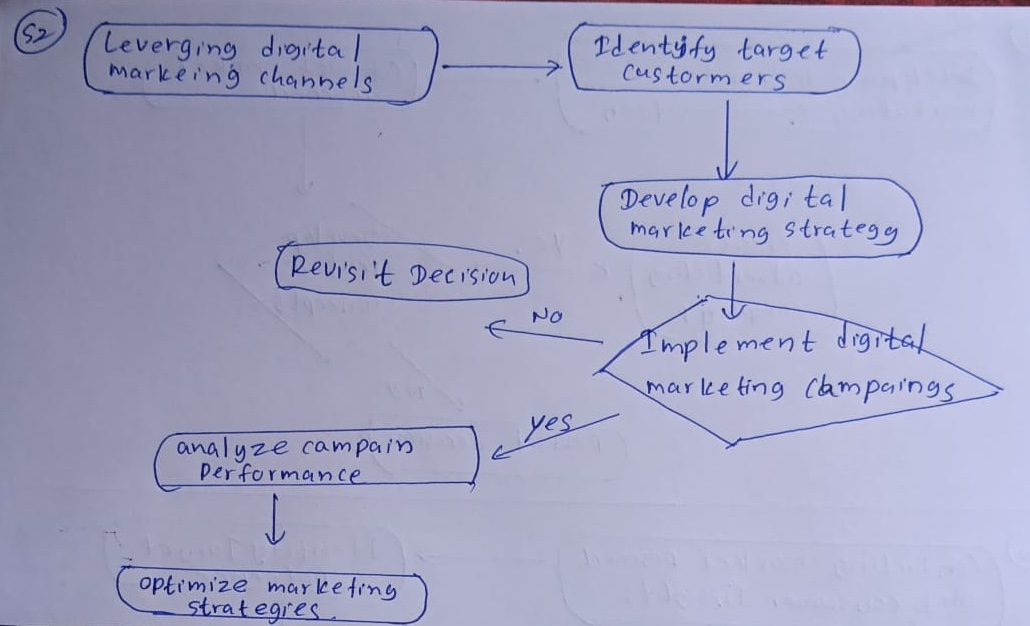 S2
Leverging digital
markeing channels
Identyfy target
custormers
Develop digital
marketing strategy
Revisit Decision
No
Implement digital
marketing Campaings
yes
analyze campain
performance
optimize marketing
strategies.